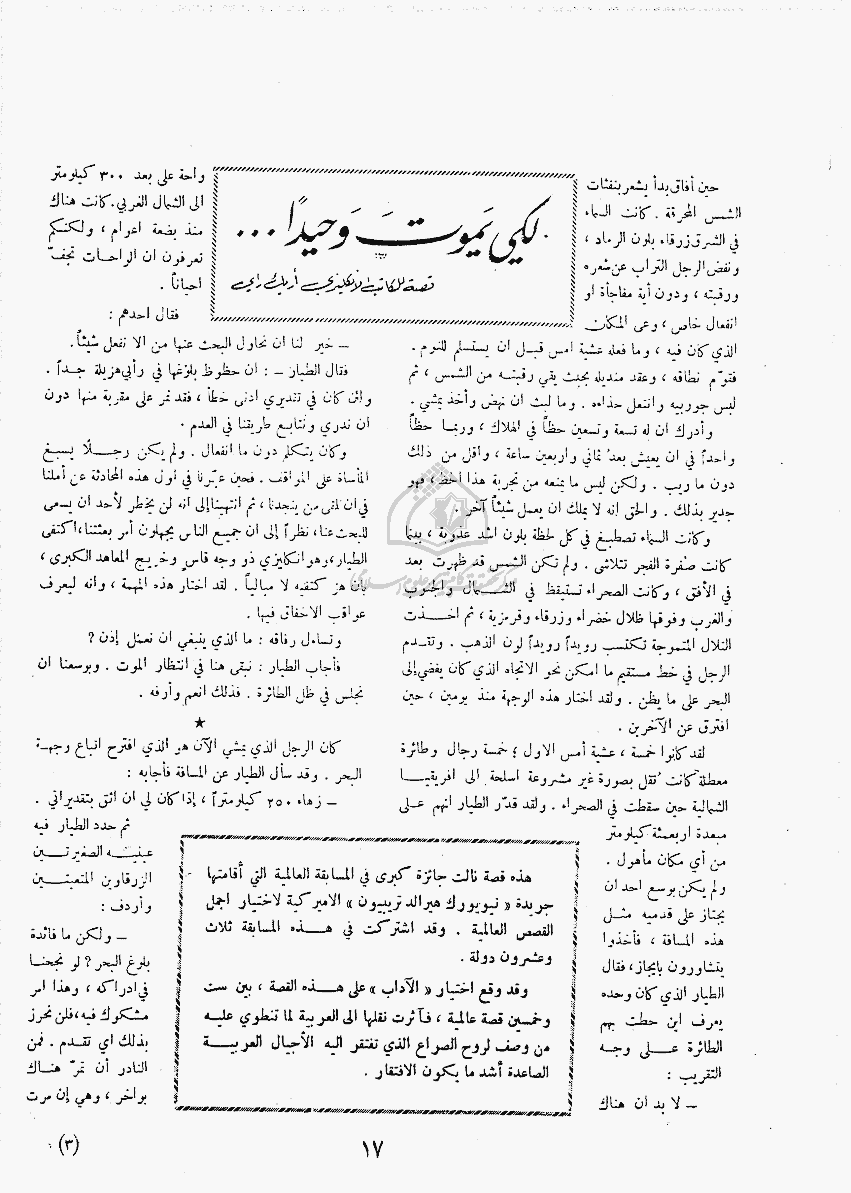 لكي يَموت وَحيدًا ...
قصة للكاتب الانكليزي أريك راي
حين أفاق بدأ يشعر بنفثات
الشمس المحرقة . كانت السماء
في الشرق زرقاء بلون الرماد ،
ونفض الرجل التراب عن شعره
ورقبته ، ودون أية مفاجأة او
انفعال خاص ، وعى المكان
الذي كان فيه ، وما فعله عشية امس قبل ان يستسلم للنوم .
فقوّم نطاقه ، وعقد منديله بحيث يقي رقبته من الشمس ، ثم
لبس جوربيه وانتعل حذاءه . وما لبث ان نهض وأخذ يمشي .
وأدرك ان له تسعة وتسعين حظاً في الهلاك ، وربما حظاً
واحداً في ان يعيش بعدُ ثماني واربعين ساعة ، واقل من ذلك
دون ما ريب . ولكن ليس ما يمنعه من تجربة هذا الحظ ، فهو
جدير بذلك . والحق انه لا يملك ان يعمل شيئاً آخر .
وكانت السماء تصطبغ في كل لحظة بلون اشد عذوبة ، بينما
كانت صفرة الفجر تتلاشى . ولم تكن الشمس قد ظهرت بعد
في الأفق ، وكانت الصحراء تستيقظ في الشمال والجنوب
والغرب وفوقها ظلال خضراء وزرقاء وقرمزية ، ثم اخذت
التلال المتموجة تكتسب رويداً رويداً لون الذهب . وتقدم
الرجل في خط مستقيم ما امكن نحو الاتجاه الذي كان يفضي إلى
البحر على ما يظن . ولقد اختار هذه الوجهة منذ يومين ، حين
افترق عن الآخرين .
لقد كانوا خمسة ، عشية أمس الاول ؛ خمسة رجال وطائرة
معطلة كانت تُنقل بصورة غير مشروعة اسلحة الى افريقيا
الشمالية حين سقطت في الصحراء . ولقد قدّر الطيار انهم على
مبعدة اربعمئة كيلومتر
من أي مكان مأهول .
ولم يكن بوسع احد ان
يجتاز على قدميه مثل
هذه المسافة ، فأخذوا
يتشاورون بايجاز ، فقال
الطيار الذي كان وحده
يعرف اين حطت بهم
الطائرة على وجه
التقريب :
– لا بد ان هناك
واحة على بعد ٣٠٠ كيلومتر
الى الشمال الغربي . كانت هناك
منذ بضعة اعوام ، ولكنكم
تعرفون ان الواحات تجفّ
احياناً .
فقال احدهم :
– خير لنا ان نحاول البحث عنها من الا نفعل شيئاً .
فقال الطيار – : ان حظوظ بلوغها في رأيي هزيلة جداً .
ولئن كان في تقديري ادنى خطأ ، فقد نمر على مقربة منها دون
ان ندري ونتابع طريقنا في العدم .
وكان يتكلم دون ما انفعال . ولم يكن رجلاً يسبغ
المأساة على المواقف . فحين عبّرنا في اول هذه المحادثة عن أملنا
في ان نلقى من ينجدنا ، ثم انتهينا إلى انه لن يخطر لأحد ان يسعى
للبحث عنا ، نظراً إلى ان جميع الناس يجهلون أمر بعثتنا ، اكتفى
الطيار ، وهو انكليزي ذو وجه قاسٍ وخريج المعاهد الكبرى ،
بأن هز كتفيه لا مبالياً . لقد اختار هذه المهمة ، وانه ليعرف
عواقب الاخفاق فيها .
وتساءل رفاقه : ما الذي ينبغي ان نعمل إذن ؟
فأجاب الطيار : نبقى هنا في انتظار الموت . وبوسعنا ان
نجلس في ظل الطائرة . فذلك انعم وأرفه .
★
كان الرجل الذي يمشي الآن هو الذي اقترح اتباع وجهة
البحر . وقد سأل الطيار عن المسافة فأجابه :
– زهاء ٢٥٠ كيلومتراً ، إذا كان لي ان اثق بتقديراتي .
ثم حدد الطيار فيه
عينيه الصغيرتين
الزرقاوين المتعبتين
وأردف :
– ولكن ما فائدة
بلوغ البحر ? لو نجحنا
في ادراكه ، وهذا امر
مشكوك فيه ، فلن نحرز
بذلك اي تقدم . فمن
النادر أن تمرّ هناك
بواخر ، وهي إن مرت
هذه قصة نالت جائزة كبرى في المسابقة العالمية التي أقامتها
جريدة « نيويورك هيرالد تريبيون » الاميركية لاختيار اجمل
القصص العالمية . وقد اشتركت في هذه المسابقة ثلاث
وعشرون دولة .
وقد وقع اختيار « الآداب » على هذه القصة ، بين ست
وخمسين قصة عالمية ، فآثرت نقلها الى العربية لما تنطوي عليه
من وصف لروح الصراع الذي تفتقر اليه الأجيال العربية
الصاعدة أشد ما يكون الافتقار .
١٧
(٣)